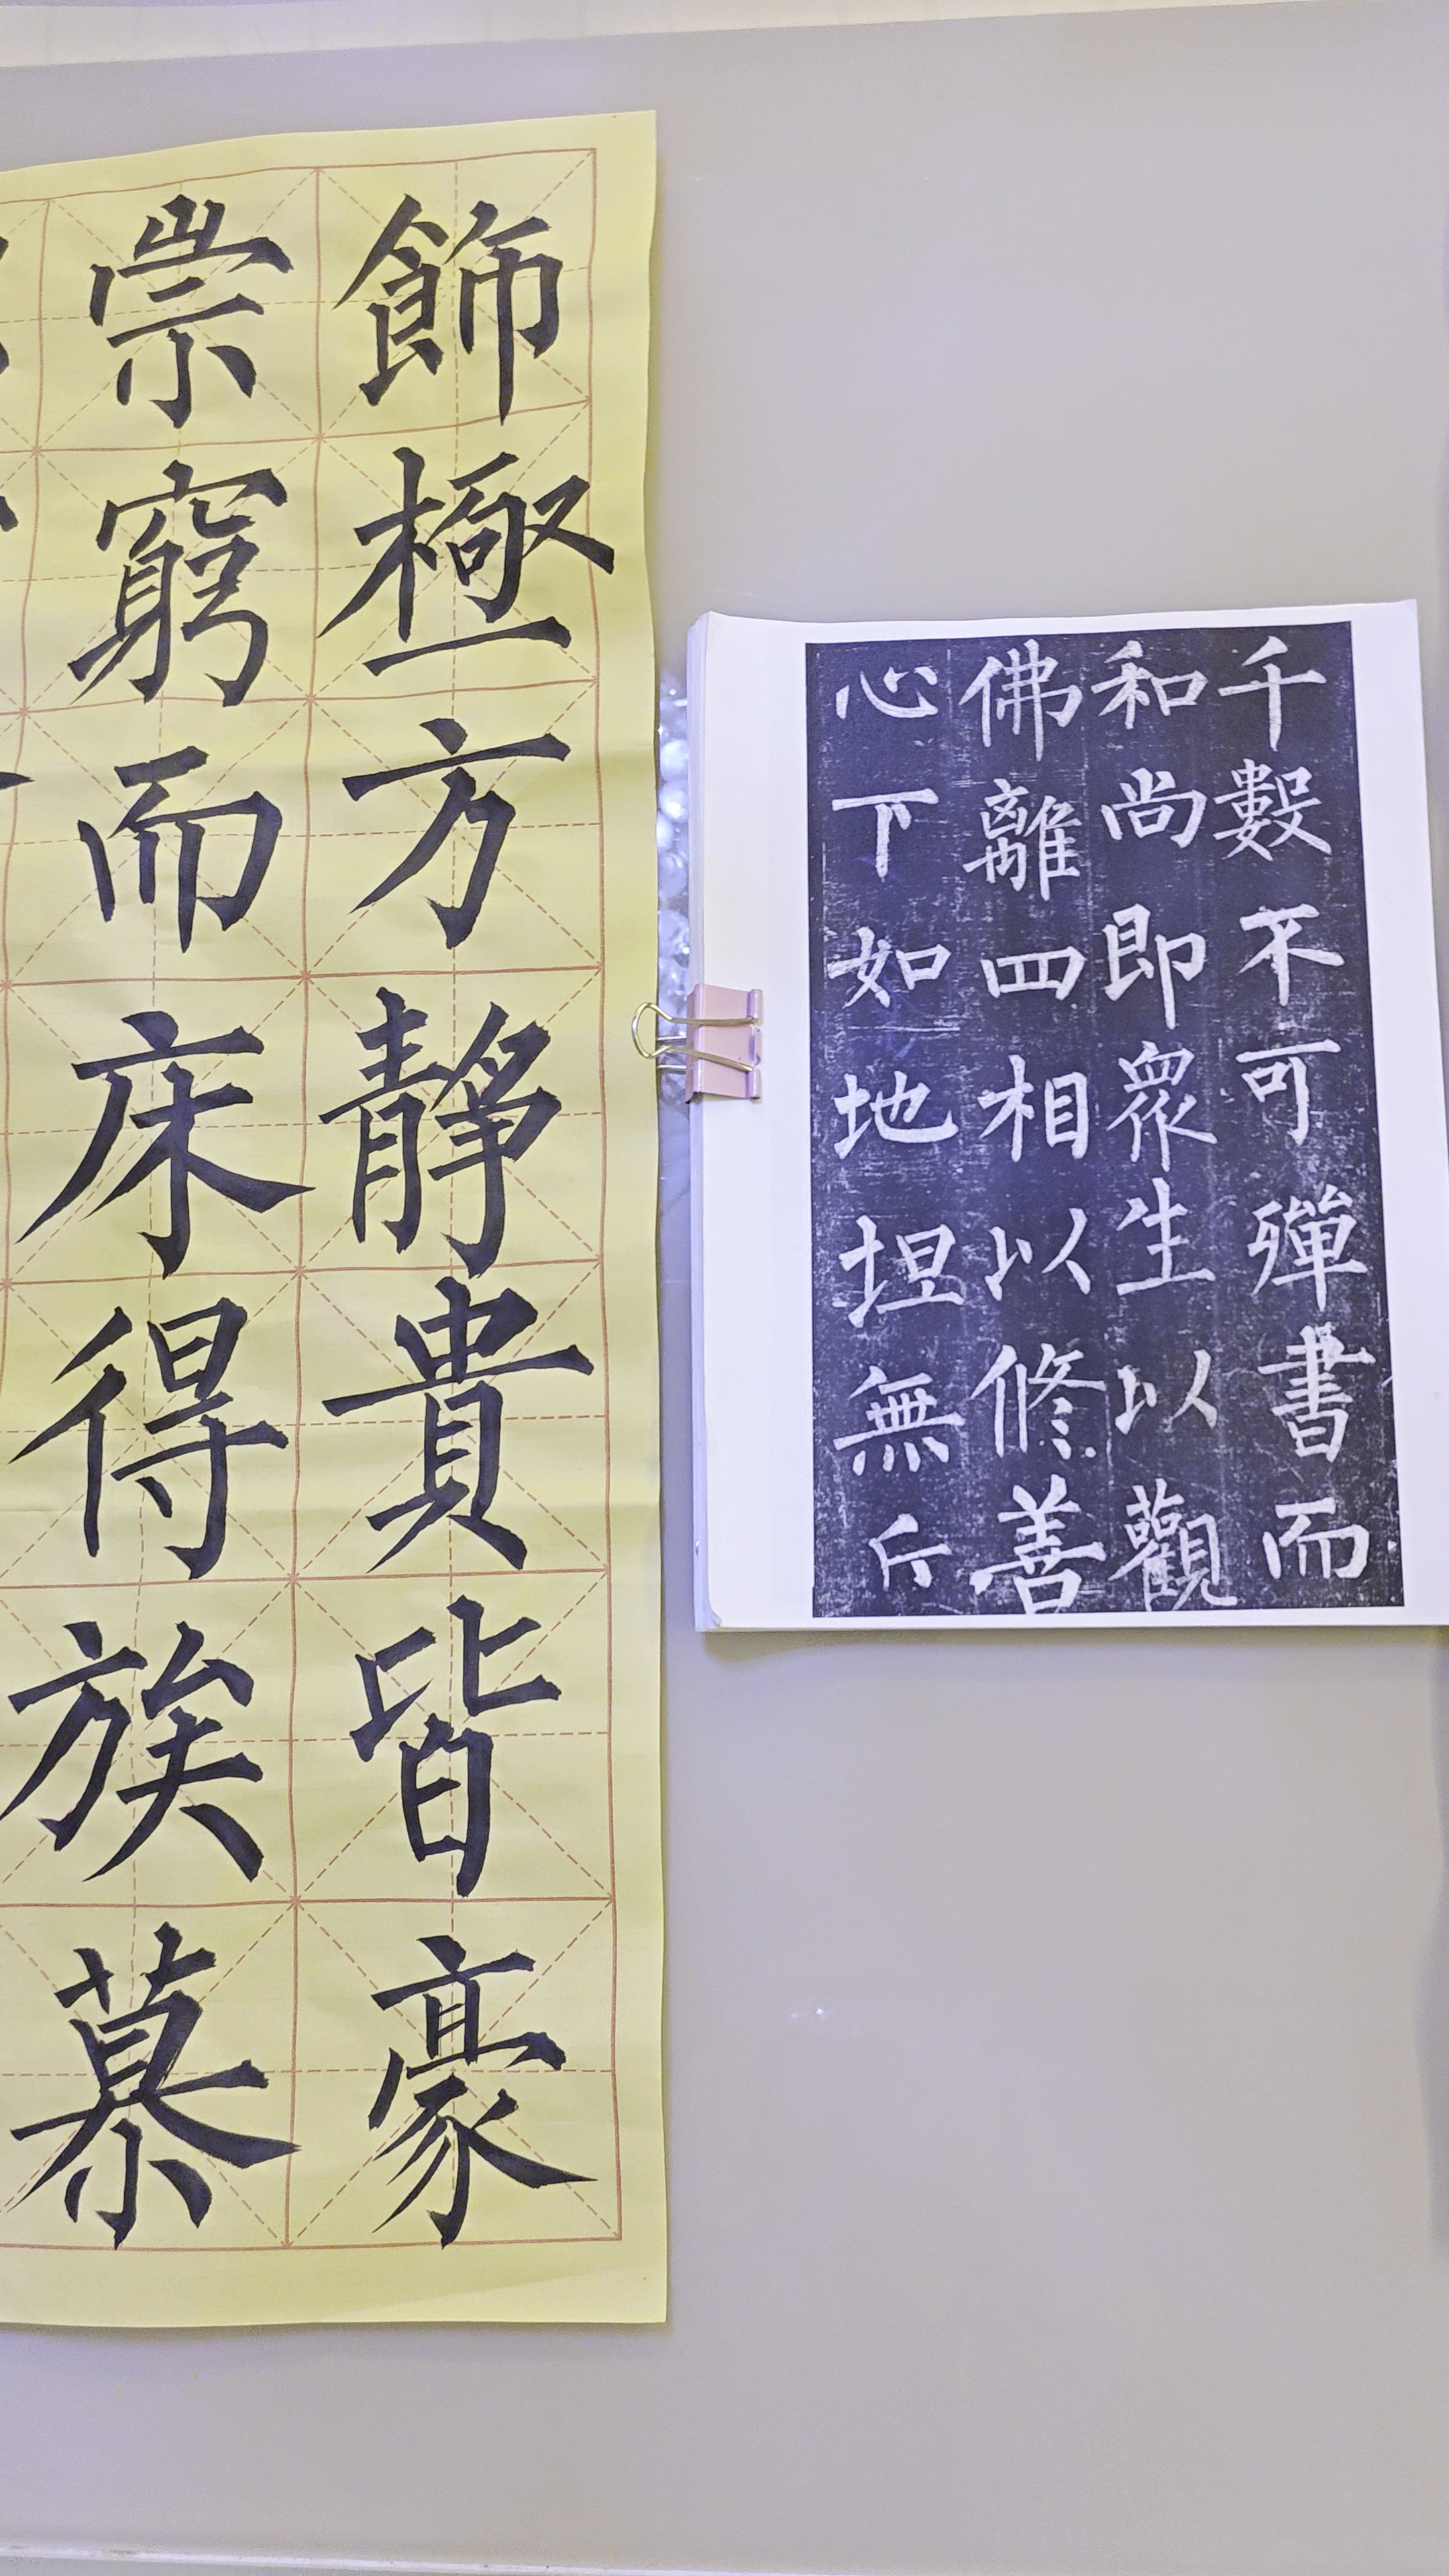 千數不可殫書而
和尚即眾生以觀
佛離四相以修善
心下如地坦無丘
飾極方靜貴皆豪
崇窮而床得族慕